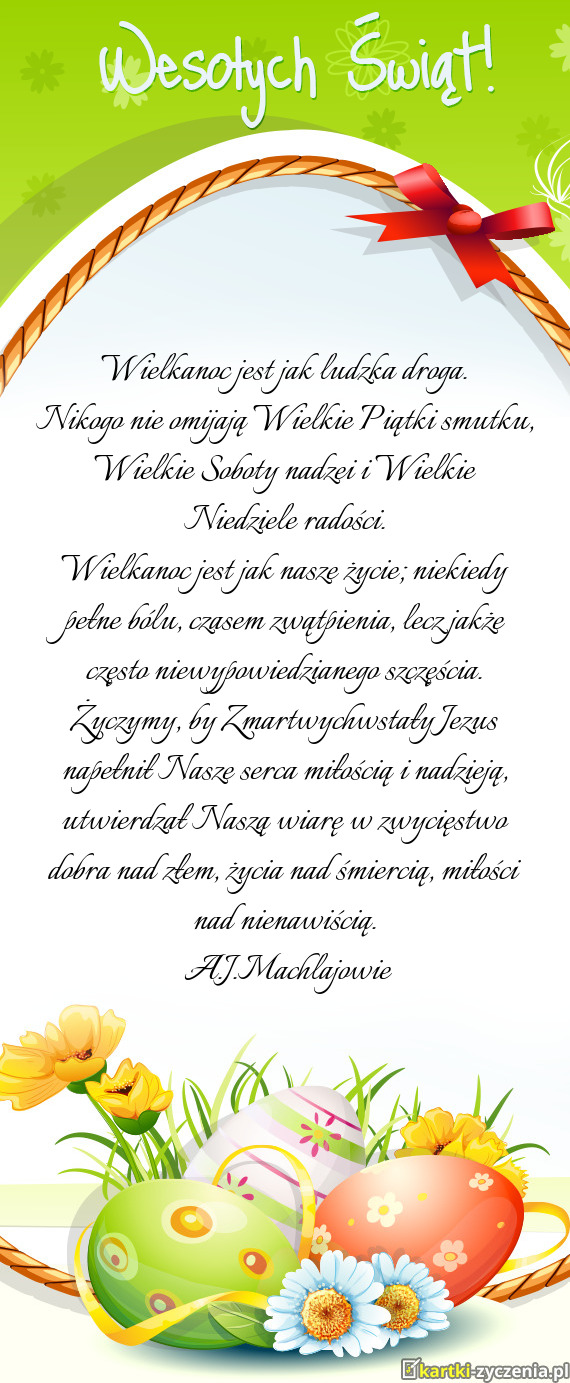 Wesołych Świąt!
Wielkanoc jest jak ludzka droga.
Nikogo nie omijają Wielkie Piątki smutku,
Wielkie Soboty nadzei i Wielkie
Niedziele radości.
Wielkanoc jest jak nasze życie; niekiedy
pełne bólu, czasem zwątpienia, lecz jakże
często niewypowiedzianego szczęścia.
Życzymy, by Zmartwychwstały Jezus
napełnił Nasze serca miłością i nadzieją,
utwierdzał Naszą wiarę w zwycięstwo
dobra nad złem, życia nad śmiercią, miłości
nad nienawiścią.
A.J.Machlajowie
kartki-zyczenia.pl